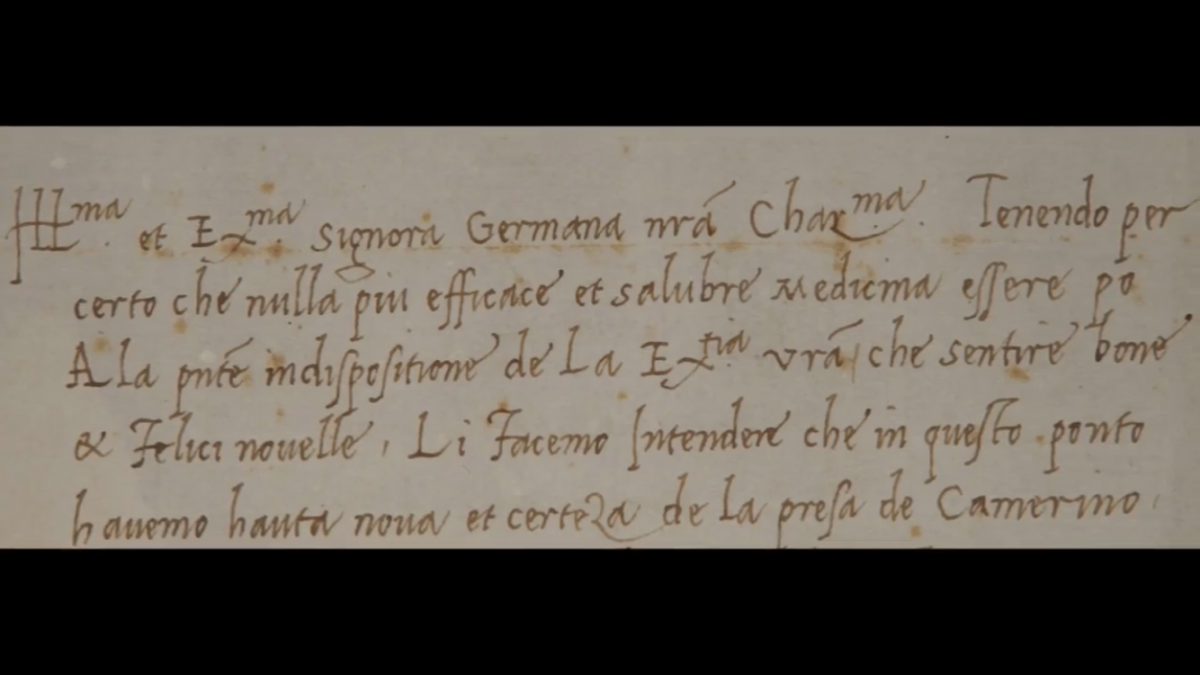 Illma. et Exma. signora Germana nrá Charma. Tenendo per
certo che nulla piu efficace et salubre Medicina essere po
A la pnté indispositione de La Extia. vrá, che sentire bone
& Felici novelle, Li Facemo Intendere che in questo ponto
havemo hauta nova et certeza de la presa de Camerino